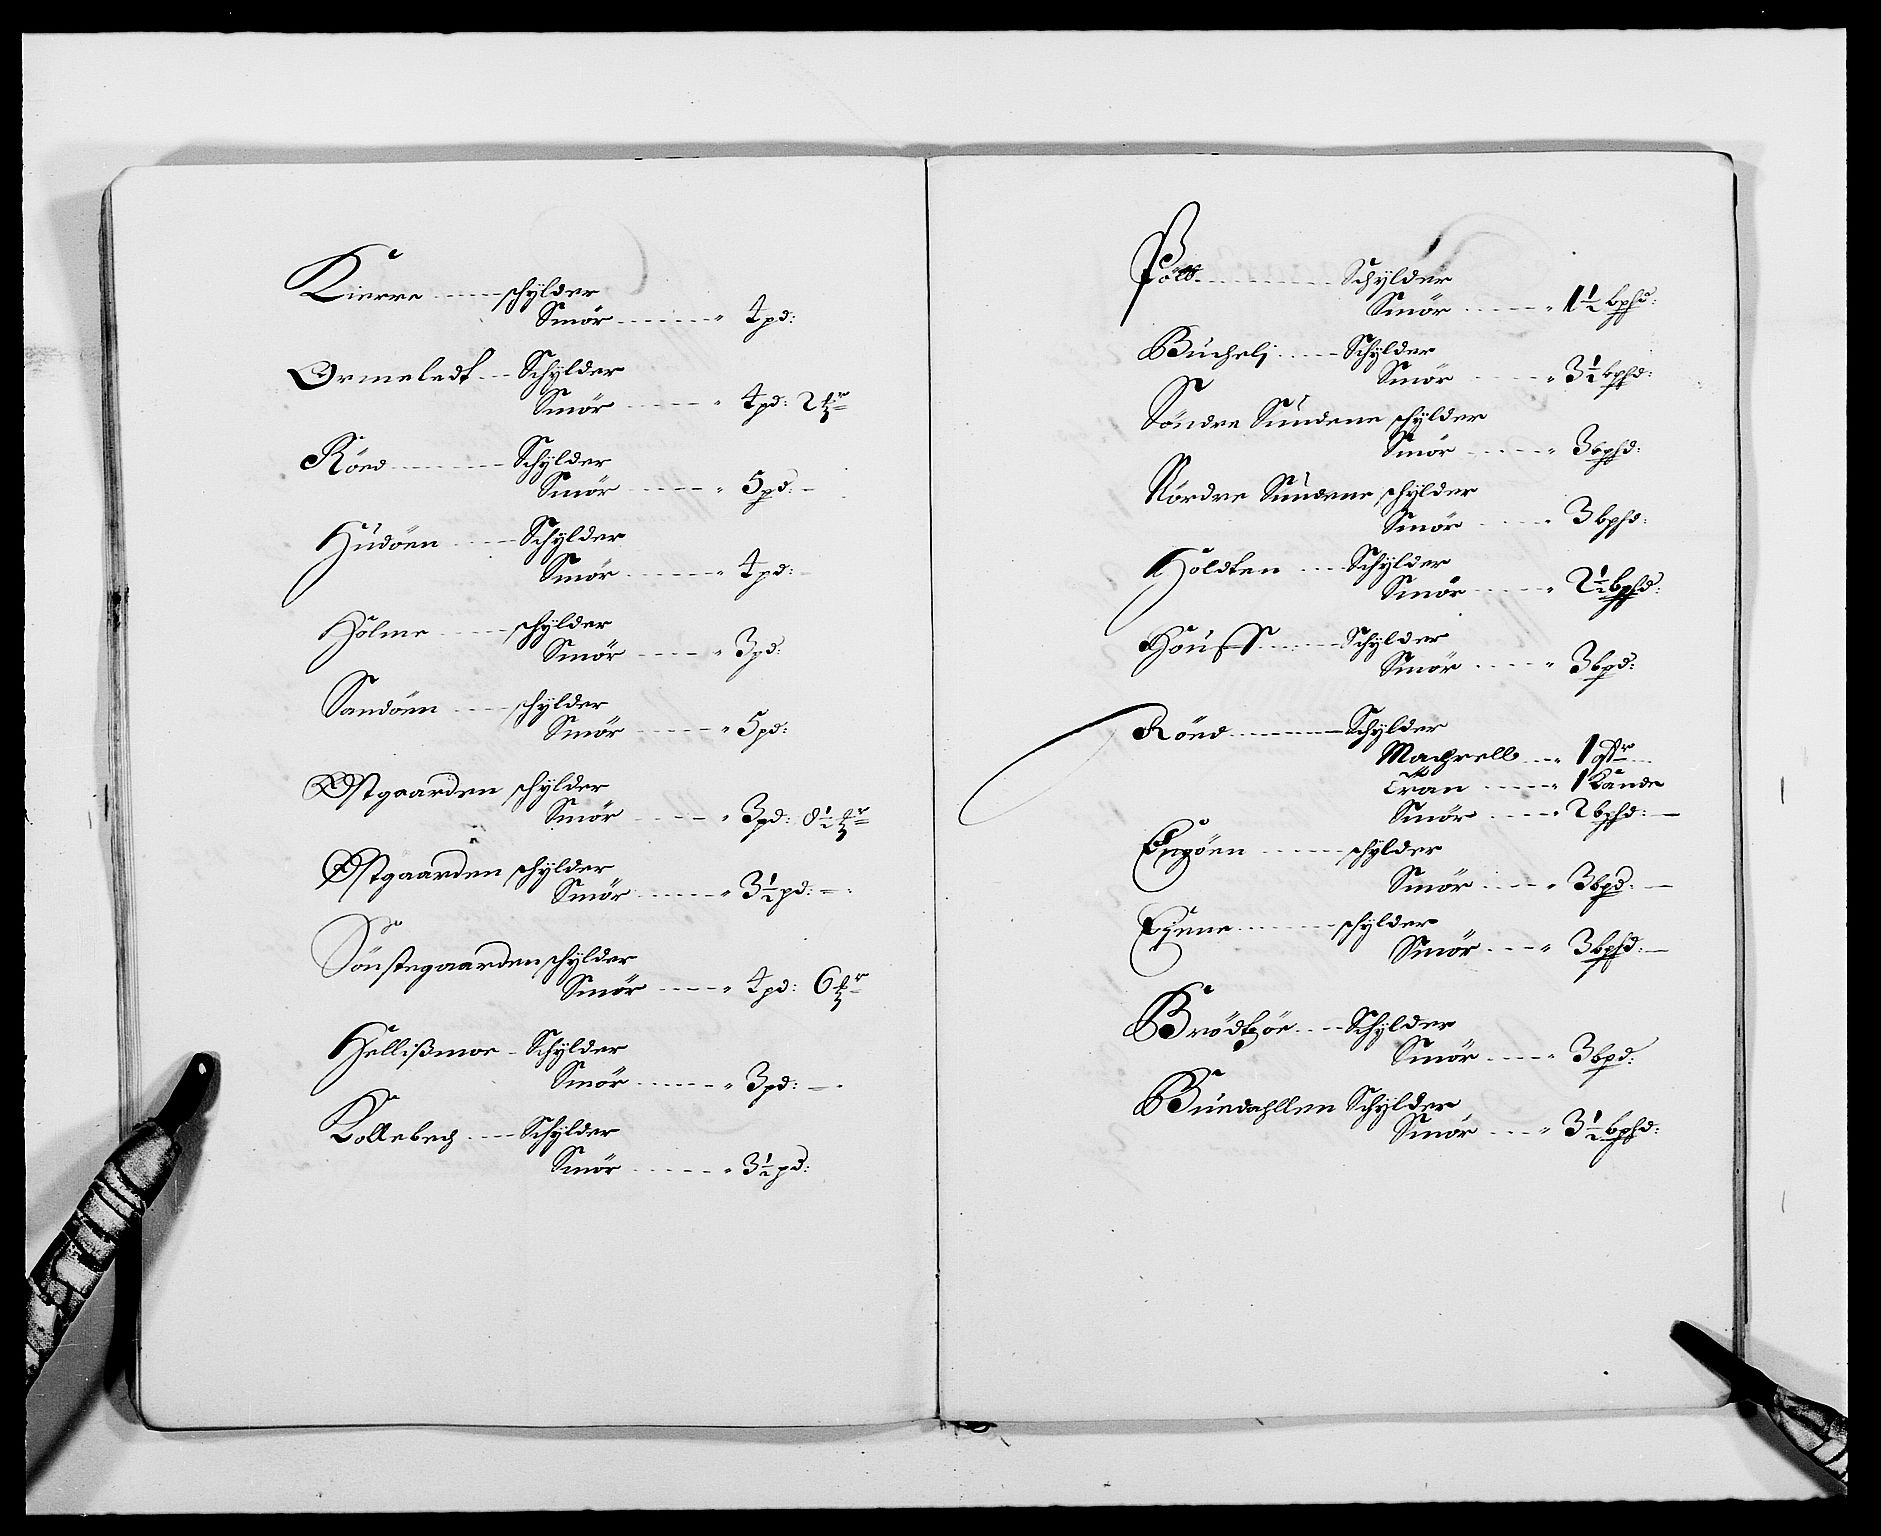 Kierre ---- schylder
Smör ------ " 4 pd:
Ormeledt -- Schylder
Smör ----- " 4 pd: 2 
Röed ------ Schylder
Smör ----- " 5 pd: -
Hudöen ---- Schylder
Smör ----- " 4 pd: -
Holme ---- schylder
Smör ----- " 3 pd:
Sandöen --- schylder
Smör ----- " 5 pd:
Østgaarden schylder
Smör ----- " 3 pd: 8½
Østgaarden schylder
Smör ----- " 3½ pd: -
Sönstegaarden schylder
Smör ---- " 4 pd: 6
Hellißmoe - Schylder
Smör ------ " 3 pd: -
Kollebech --- Schylder
Smör ------ " 3½ pd:
Schylder
Smör ---- " 1½ bpd:
Bucholj ---- Schylder
Smör ---- " 3½ bpd:
Söndre Sundene schylder
Smör ---- " 3 bpd:
Nordre Sundene schylder
Smör ---- " 3 bpd:
Holdten --- Schylder
Smör ---- " 2½ bpd:
Houff ---- Schylder
Smör ---- " 3 bpd:
Röed ------ Schylder
Machrell -- " 1
Tran ---- " 1 Kande
Smör ---- " 2 bpd: -
Engöen ----- schylder
Smör ---- " 3 bpd: -
Eyene ----- schylder
Smör --- " 3 bpd: -
Brödtzöe --- Schylder
Smör ---- " 3 bpd:
Buedahllen Schylder
Smör --- " 3½ bpd: